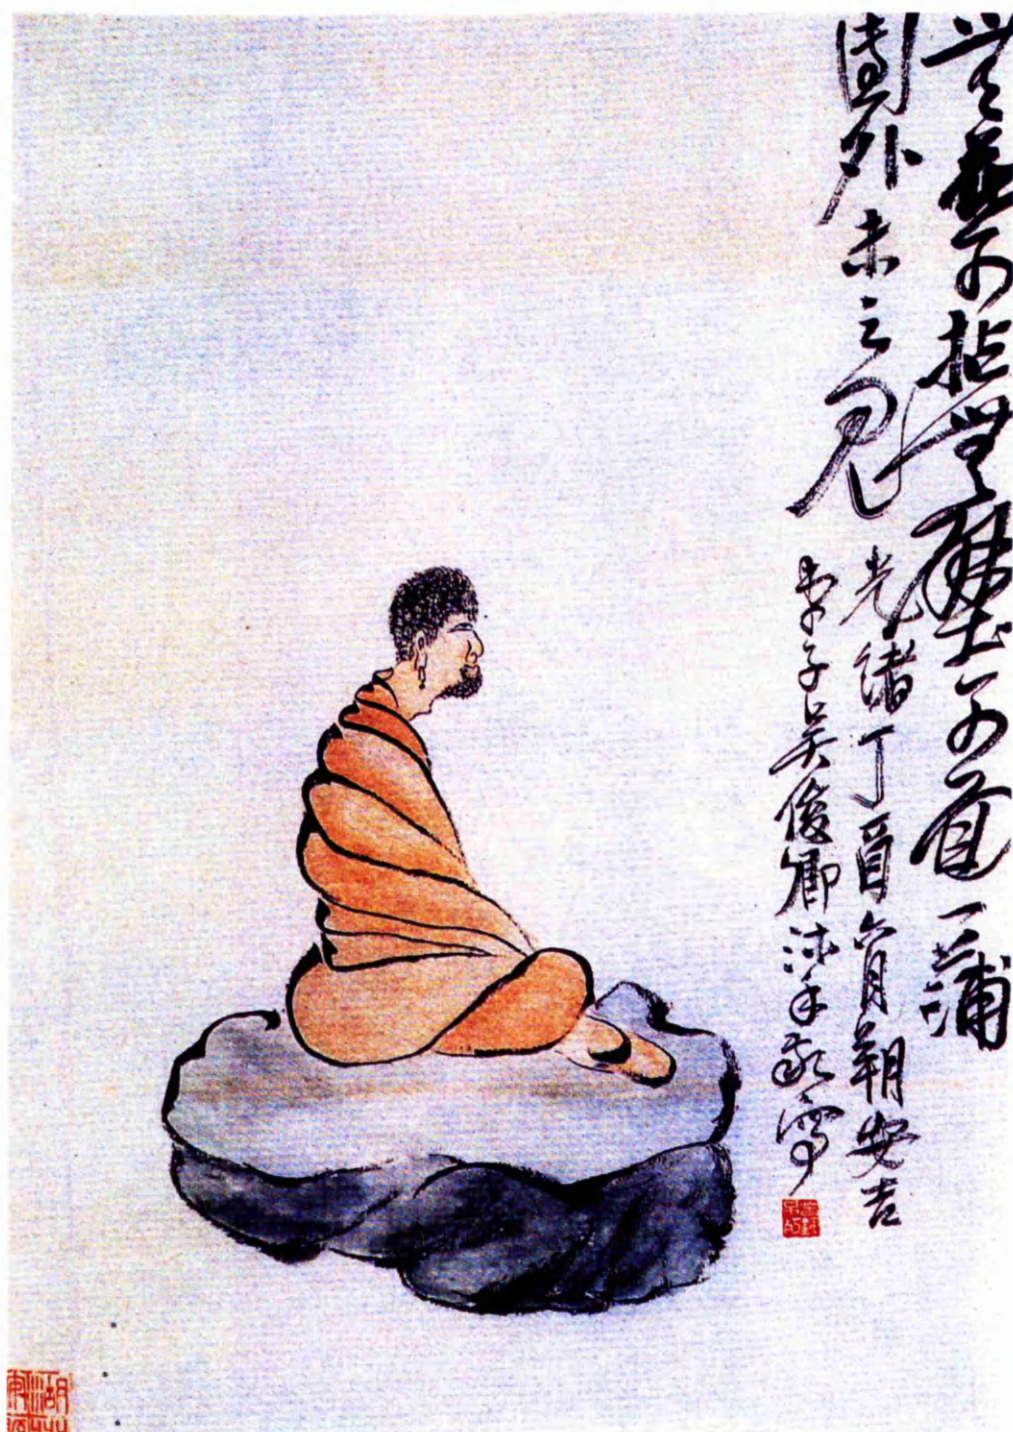 無華可拈無壁可面一蒲
團外未之見
光緒丁酉六月朔安吉
弟子吳俊卿沐手敬寫